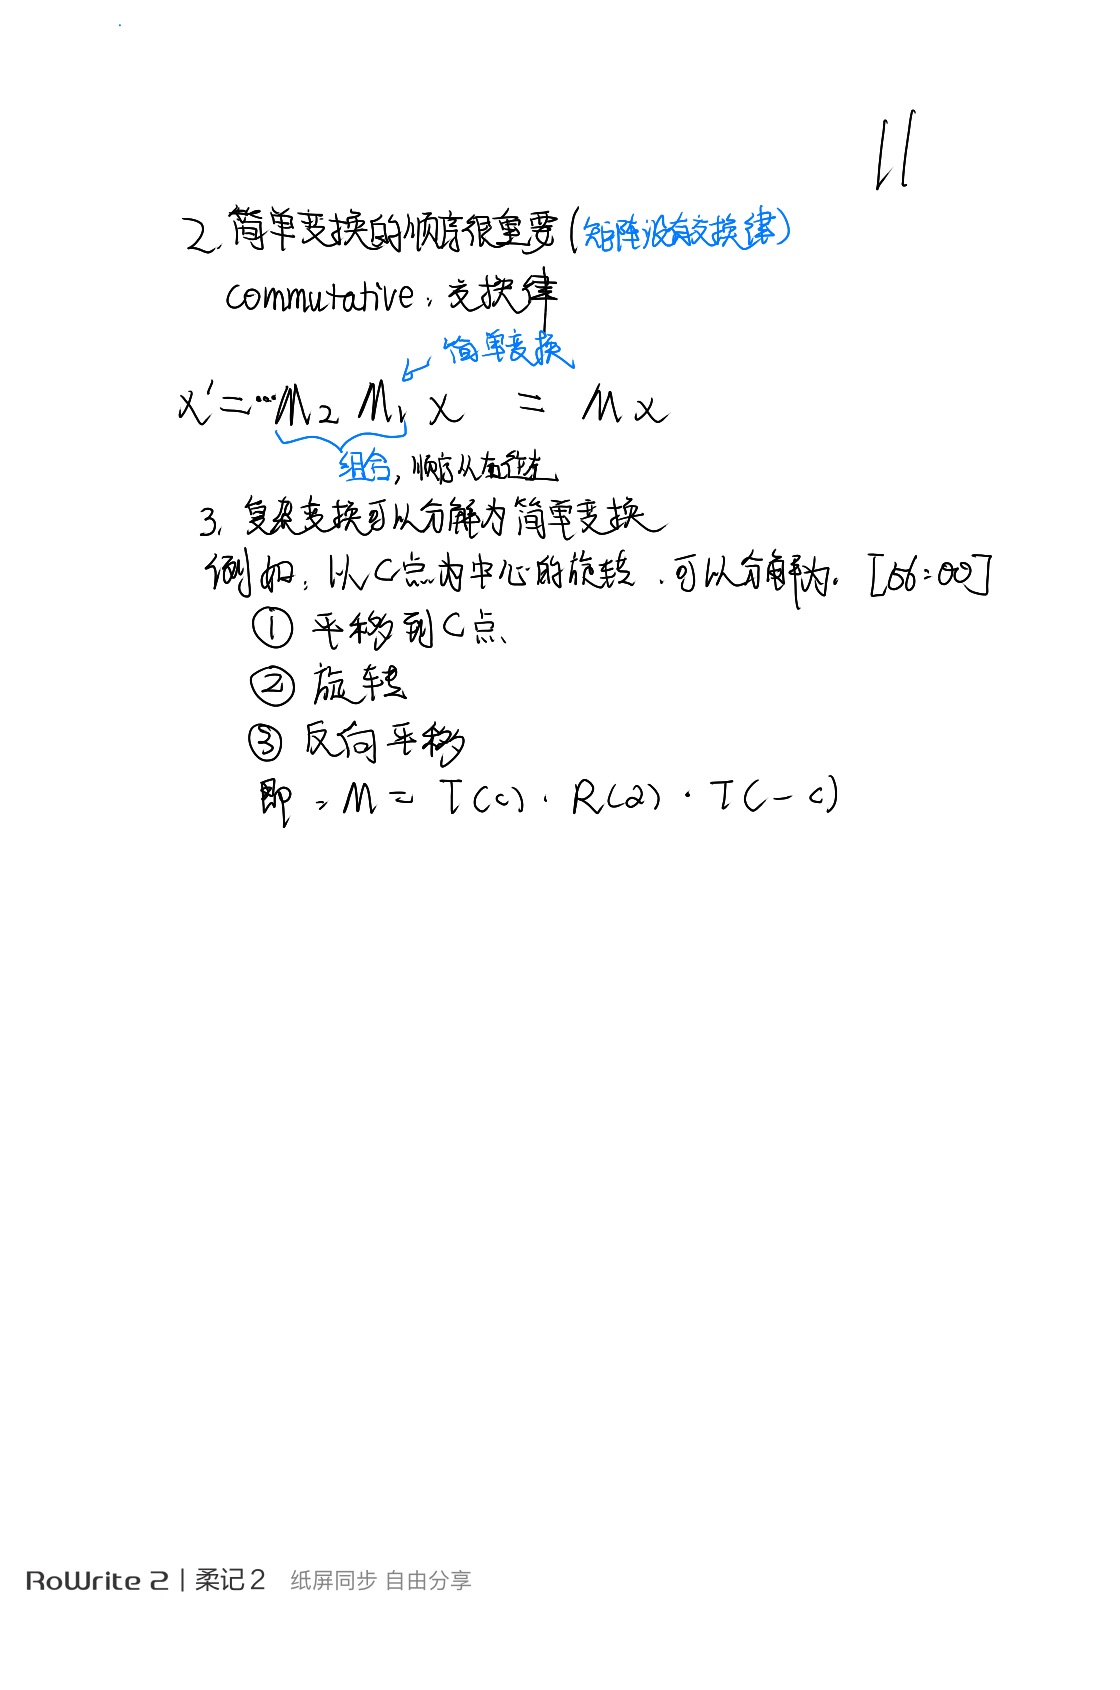 11
2. 简单变换的顺序很重要(矩阵没有交换律)
commutative: 交换律
简单变换
x'=…M₂ M₁ x = Mx
组合, 顺序从右往左
3. 复杂变换可以分解为简单变换
例如: 以C点为中心的旋转, 可以分解为: [56:00]
① 平移到C点、
② 旋转
③ 反向平移
即: M = T(c) · R(α) · T(-c)
RoWrite 2 | 柔记 2 纸屏同步 自由分享